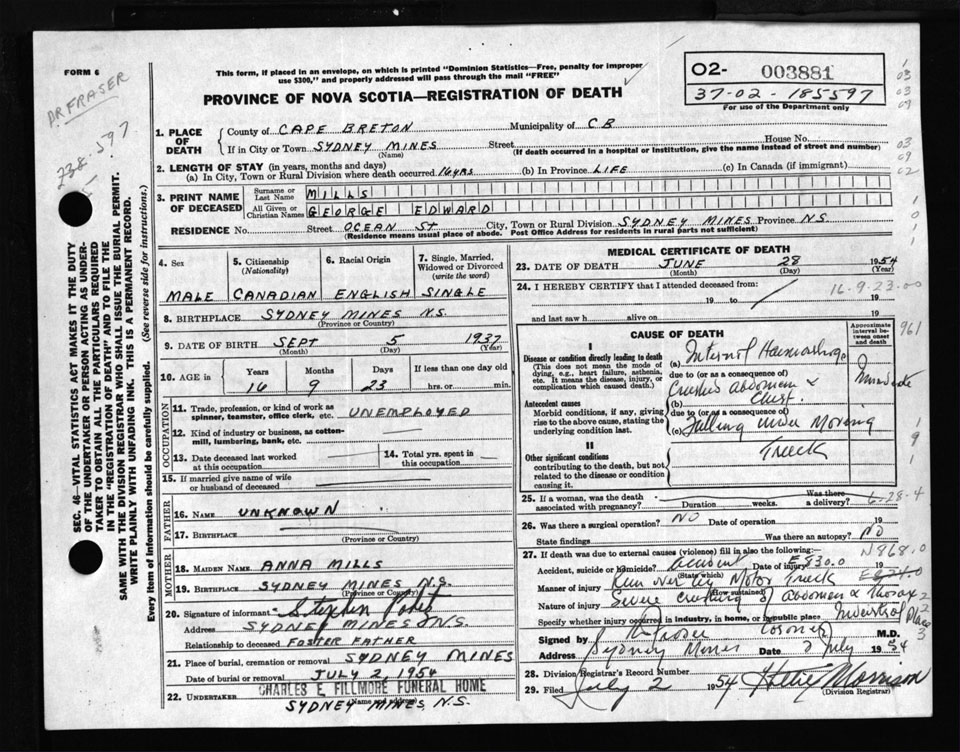 FORM 6
DR FRASER
238-597
This form, if placed in an envelope, on which is printed "Dominion Statistics—Free, penalty for improper
use $300," and properly addressed will pass through the mail "FREE"
PROVINCE OF NOVA SCOTIA—REGISTRATION OF DEATH
02- 003881
37-02-185597
For use of the Department only
SEC. 46—VITAL STATISTICS ACT MAKES IT THE DUTY
OF THE UNDERTAKER OR PERSON ACTING AS UNDER-
TAKER TO OBTAIN ALL THE PARTICULARS REQUIRED
IN THE "REGISTRATION OF DEATH" AND TO FILE THE
SAME WITH THE DIVISION REGISTRAR WHO SHALL ISSUE THE BURIAL PERMIT.
WRITE PLAINLY WITH UNFADING INK. THIS IS A PERMANENT RECORD.
Every item of information should be carefully supplied. (See reverse side for instructions.)
1. PLACE OF DEATH
County of CAPE BRETON Municipality of CB
If in City or Town SYDNEY MINES Street House No.
(Name) (If death occurred in a hospital or institution, give the name instead of street and number)
2. LENGTH OF STAY (in years, months and days)
(a) In City, Town or Rural Division where death occurred 16 yrs (b) In Province LIFE (c) In Canada (if immigrant)
3. PRINT NAME OF DECEASED
Surname or Last Name MILLS
All Given or Christian Names GEORGE EDWARD
RESIDENCE No. Street OCEAN ST. City, Town or Rural Division SYDNEY MINES Province N.S.
(Residence means usual place of abode. Post Office Address for residents in rural parts not sufficient)
4. Sex
MALE
5. Citizenship (Nationality)
CANADIAN
6. Racial Origin
ENGLISH
7. Single, Married, Widowed or Divorced (write the word)
SINGLE
8. BIRTHPLACE SYDNEY MINES N.S.
(Province or Country)
9. DATE OF BIRTH SEPT 5 1937
(Month) (Day) (Year)
10. AGE in Years Months Days If less than one day old
16 9 23 hrs. or min.
OCCUPATION
11. Trade, profession, or kind of work as spinner, teamster, office clerk, etc. UNEMPLOYED
12. Kind of industry or business, as cotton-mill, lumbering, bank, etc.
13. Date deceased last worked at this occupation
14. Total yrs. spent in this occupation
15. If married give name of wife or husband of deceased
FATHER
16. Name UNKNOWN
17. Birthplace
(Province or Country)
MOTHER
18. Maiden Name ANNA MILLS
19. Birthplace SYDNEY MINES N.S.
(Province or Country)
20. Signature of informant Stephen
Address SYDNEY MINES N.S.
Relationship to deceased FOSTER FATHER
21. Place of burial, cremation or removal SYDNEY MINES
Date of burial or removal JULY 2, 1954
22. UNDERTAKER CHARLES E. FILLMORE FUNERAL HOME
(Name and Address)
SYDNEY MINES, N.S.
MEDICAL CERTIFICATE OF DEATH
23. DATE OF DEATH JUNE 28 1954
(Month) (Day) (Year)
24. I HEREBY CERTIFY that I attended deceased from:
16-9-23-00
19 to 19
and last saw h alive on 19
CAUSE OF DEATH
Approximate interval between onset and death
961
I
Disease or condition directly leading to death
(This does not mean the mode of dying, e.g., heart failure, asthenia, etc. It means the disease, injury, or complication which caused death.)
(a) Internal Haemorrhage
due to (or as a consequence of)
Immediate
Antecedent causes
Morbid conditions, if any, giving rise to the above cause, stating the underlying condition last.
(b) Crushed abdomen & Chest.
due to (or as a consequence of)
(c) Falling under Moving
Truck
II
Other significant conditions
contributing to the death, but not related to the disease or condition causing it.
25. If a woman, was the death associated with pregnancy? Duration weeks. Was there a delivery?
6-28-4
26. Was there a surgical operation? NO Date of operation 19
State findings Was there an autopsy? NO
N868.0
27. If death was due to external causes (violence) fill in also the following:—
Accident, suicide or homicide? Accident Date of injury 19
(State which)
E830.0
Manner of injury Run over by Motor Truck
(How sustained)
Nature of injury Severe crushing of abdomen & thorax
Specify whether injury occurred in industry, in home, or in public place Industrial Place
Signed by Coroner M.D.
Address Sydney Mines Date 2 July 1954
28. Division Registrar's Record Number
29. Filed July 2 1954 Morrison
(Division Registrar)